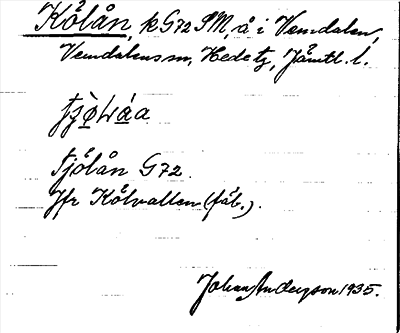 Kölån, k G72 SM, å i Vemdalen,
Vemdalens sn, Hede tg, Jämtl. l.
Tjölån G72.
Jfr Kölvallen (fäb.).
Johan Anderson 1935.